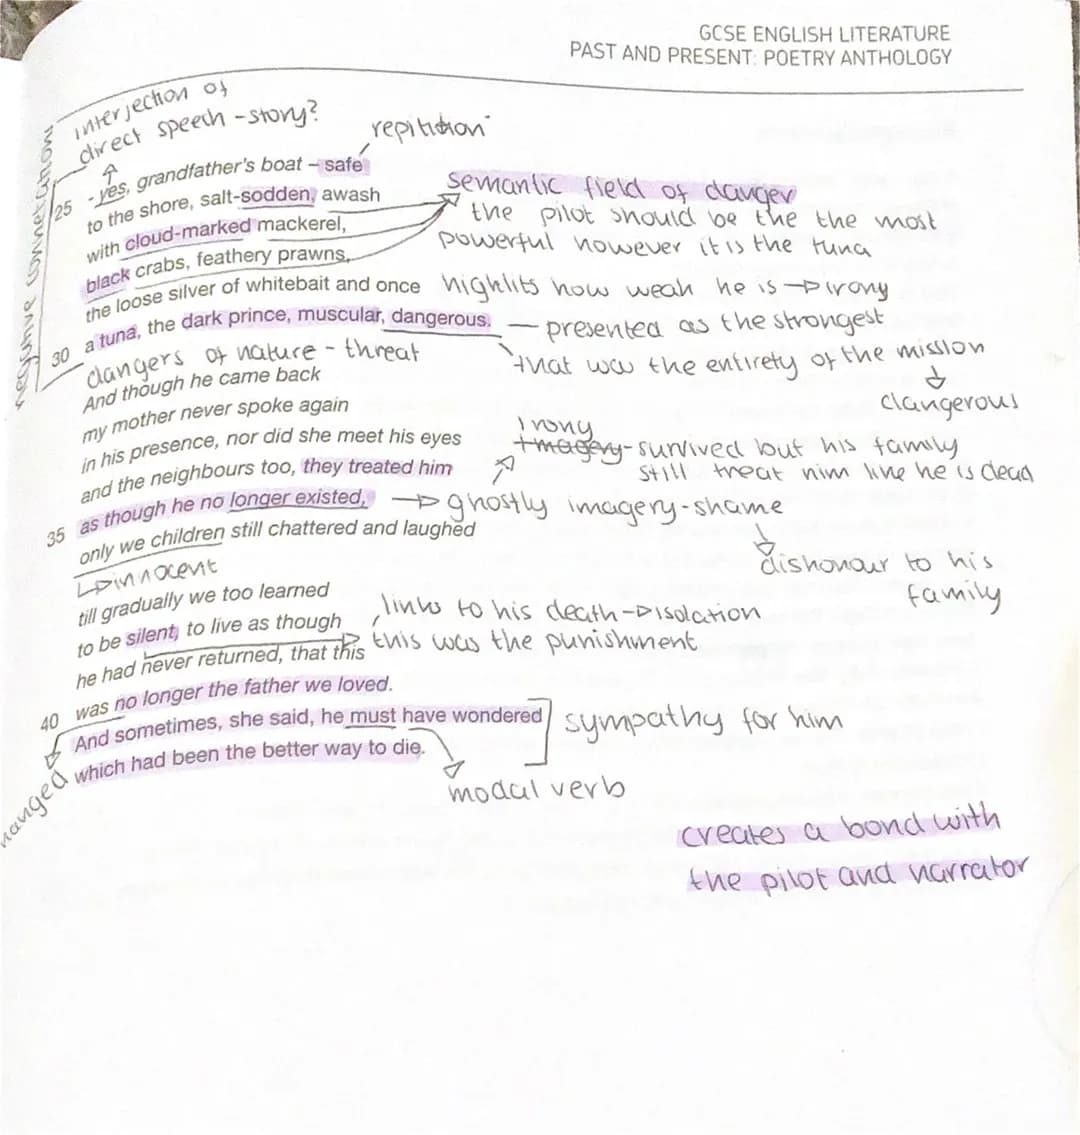 GCSE ENGLISH LITERATURE
PAST AND PRESENT: POETRY ANTHOLOGY
interjection of
direct speech - story?
repitition
negative connotations
25 - yes, grandfather's boat – safe
to the shore, salt-sodden, awash
with cloud-marked mackerel,
black crabs, feathery prawns,
the loose silver of whitebait and once
30 a tuna, the dark prince, muscular, dangerous.
semantic field of danger
the pilot should be the the most
powerful however it is the tuna
highlits how weak he is → irony
— presented as the strongest
that was the entirety of the mission
dangerous
dangers of nature - threat
And though he came back
my mother never spoke again
in his presence, nor did she meet his eyes
and the neighbours too, they treated him
35 as though he no longer existed,
only we children still chattered and laughed
Irony
Imagery - survived but his family
still treat him like he is dead
→ ghostly imagery - shame
dishonour to his
family
innocent
till gradually we too learned
to be silent, to live as though
he had never returned, that this
40 was no longer the father we loved.
And sometimes, she said, he must have wondered
which had been the better way to die.
links to his death → isolation
this was the punishment
sympathy for him
modal verb
creates a bond with
the pilot and narrator